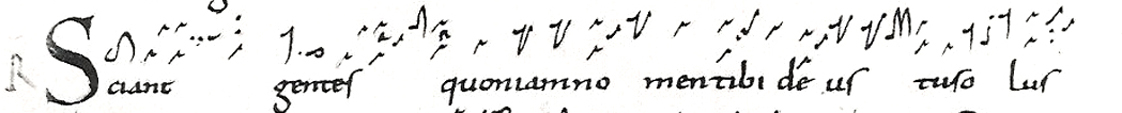 R Sciant gentes quoniam no men tibi de us tu so lus